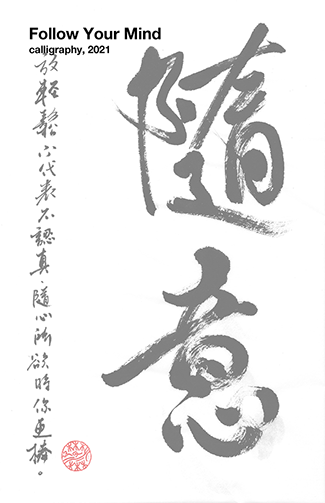 Follow Your Mind
calligraphy, 2021
隨意
放輕鬆不代表不認真，隨心所欲時你更棒。